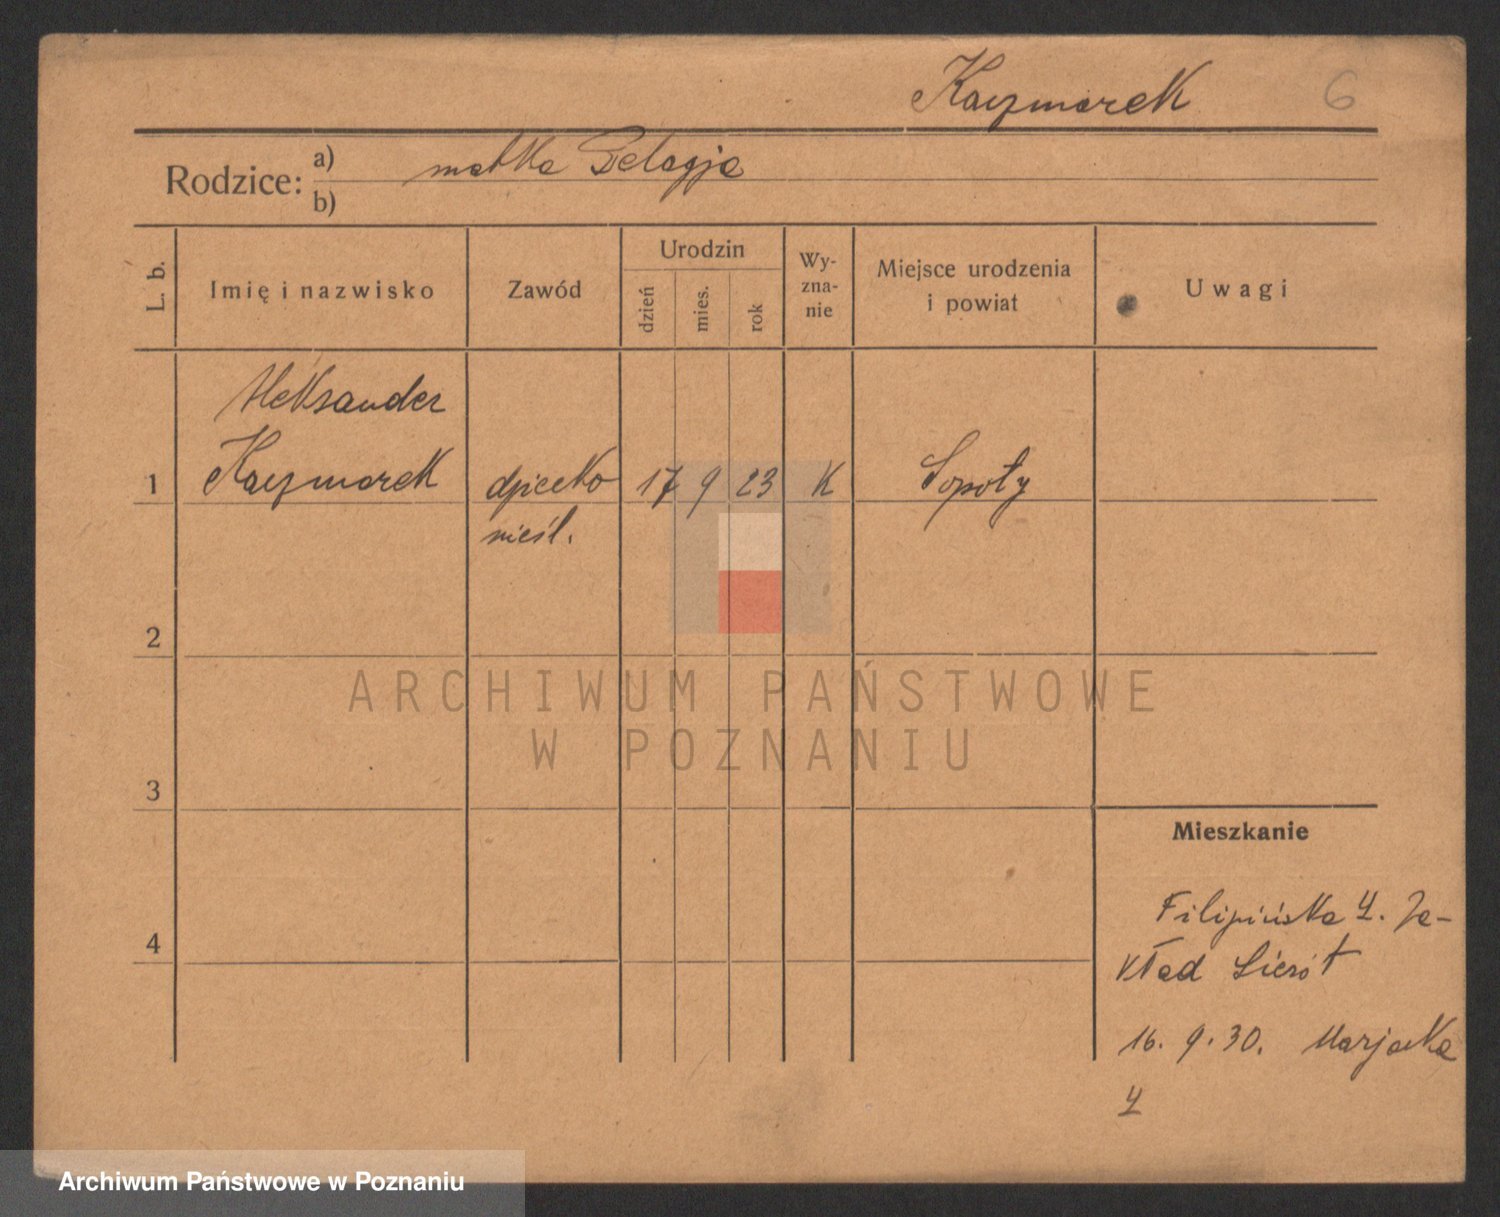 Kaczmarek 6
Rodzice: a) matka Pelagja
b)
L. b.
Imię i nazwisko
Zawód
Urodzin
dzień
mies.
rok
Wy-
zna-
nie
Miejsce urodzenia
i powiat
Uwagi
Aleksander
1 Kaczmarek dziecko 17 9 23 K Sopoty
nieśl.
2
3
4
Mieszkanie
Filipińska 4. Za-
kład Sierót
16. 9. 30. Marjacka
4
ARCHIWUM PAŃSTWOWE
W POZNANIU
Archiwum Państwowe w Poznaniu